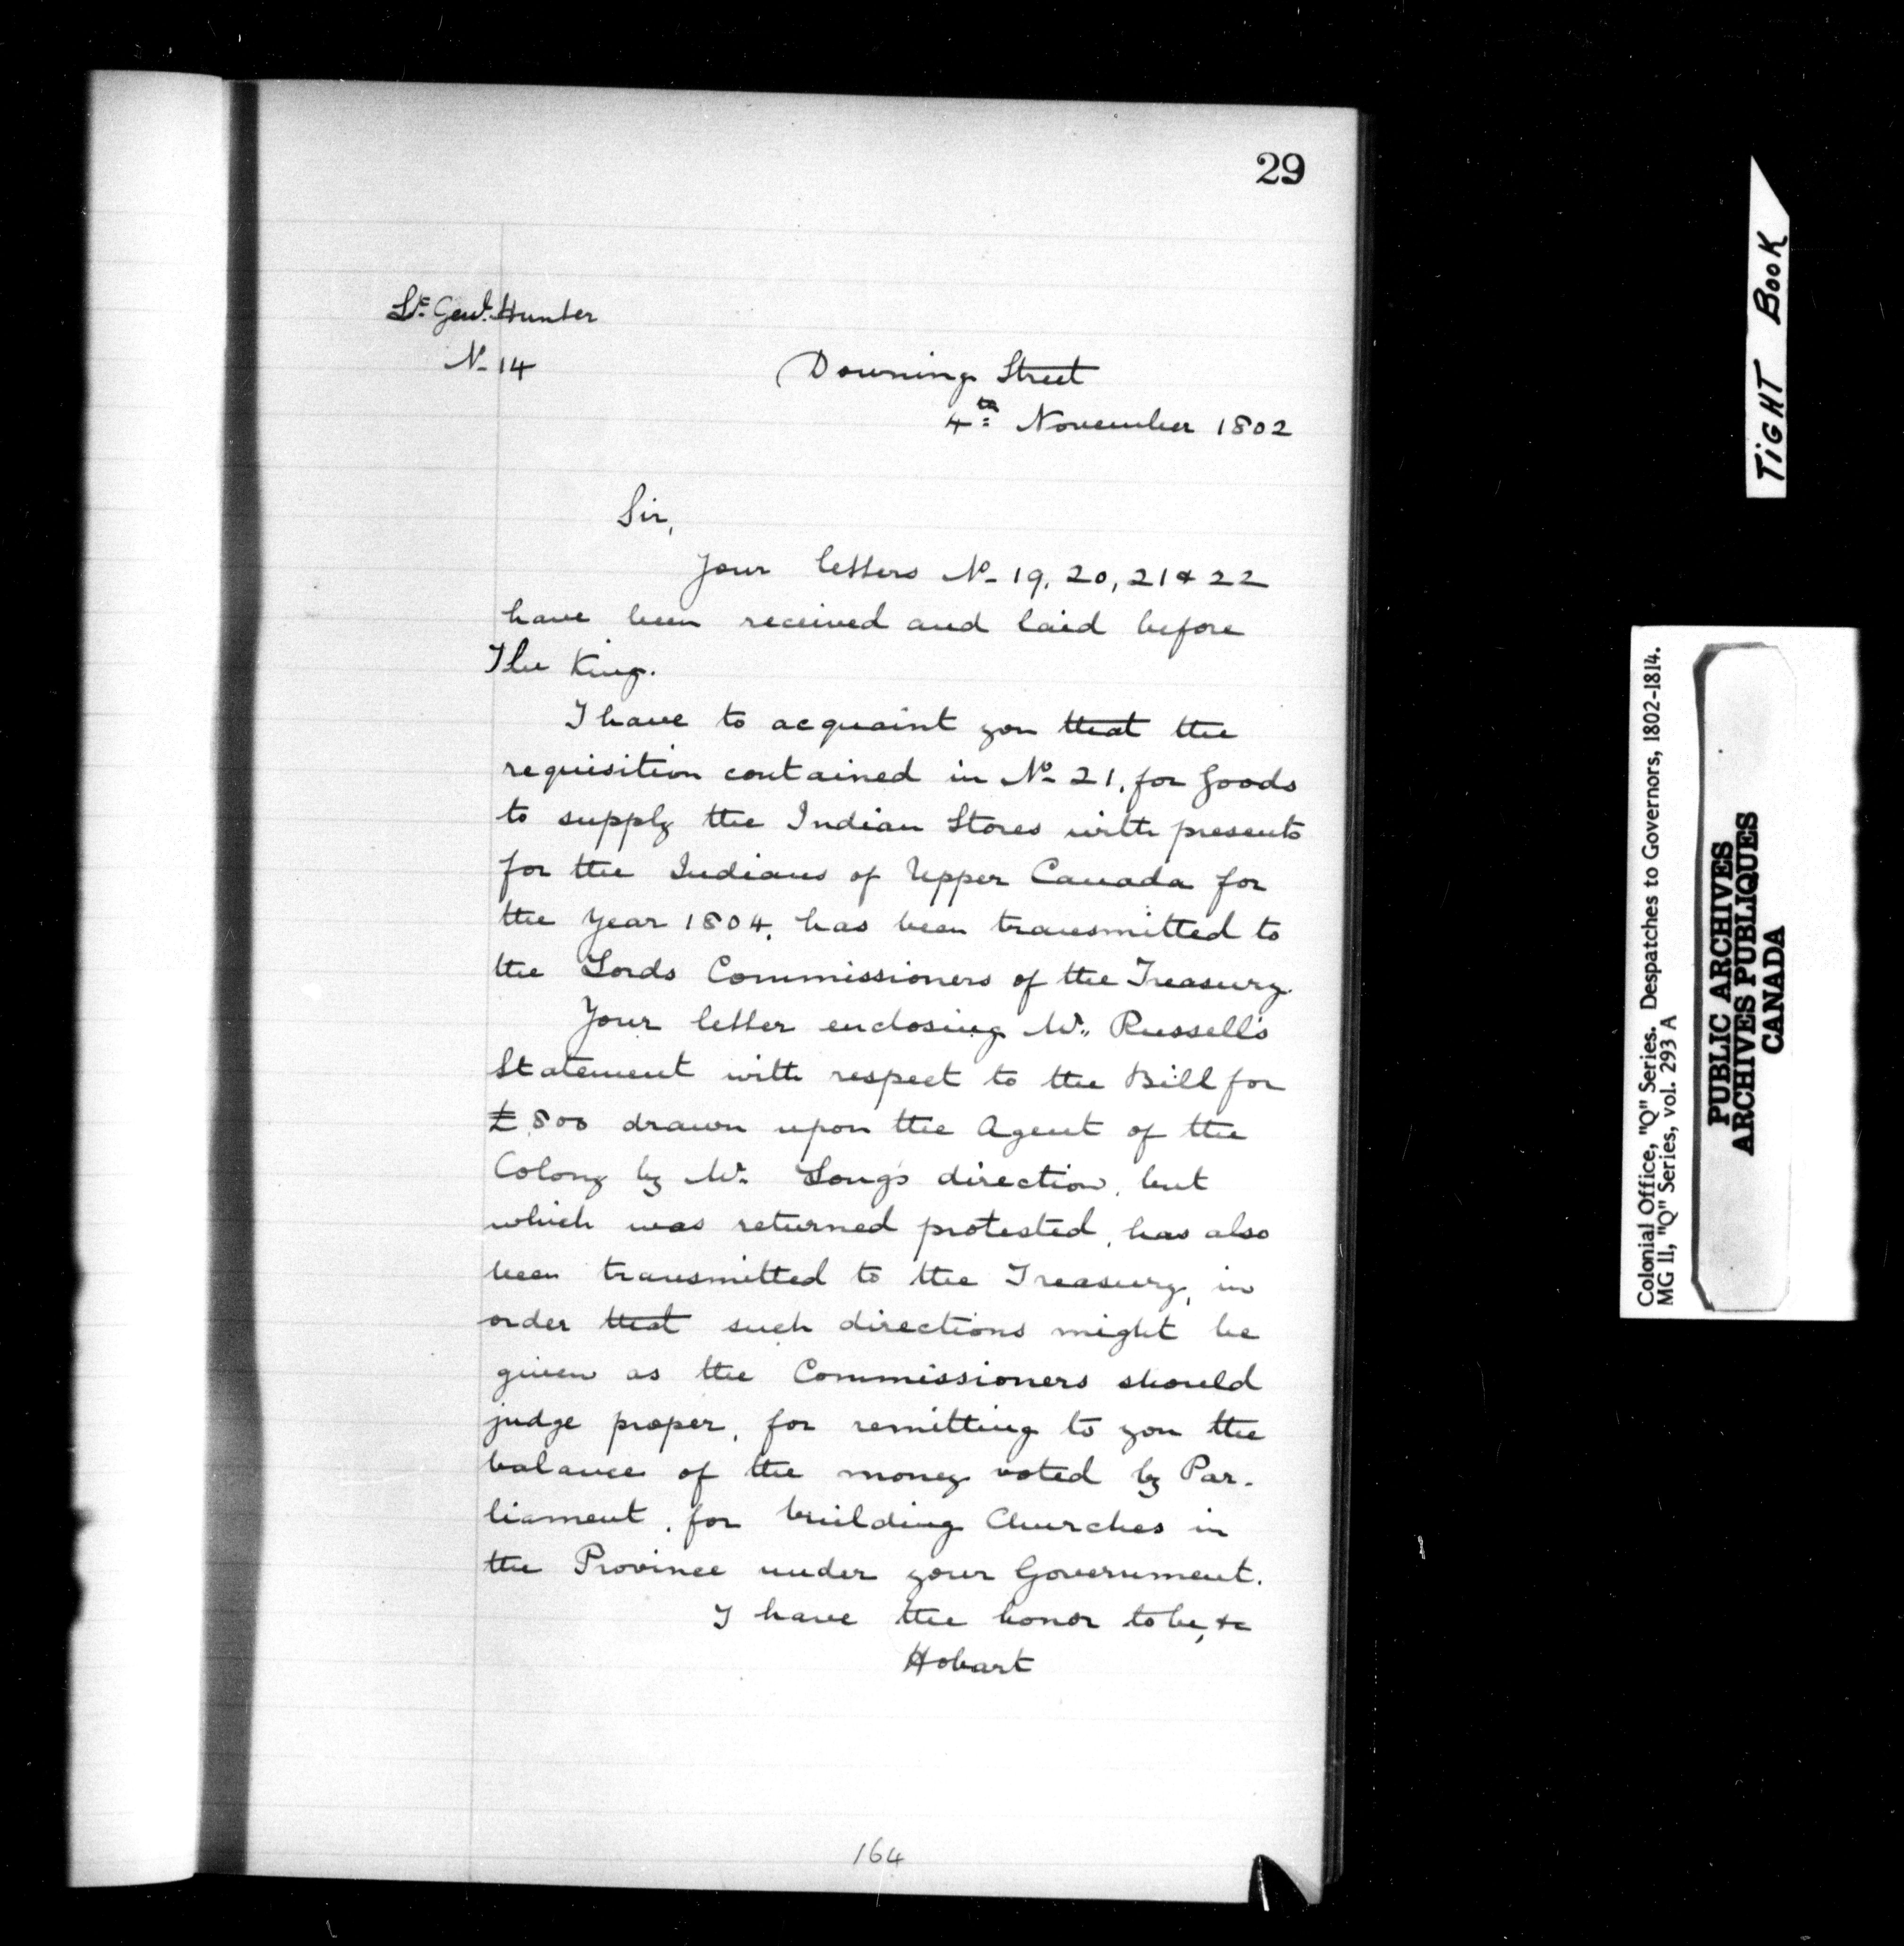 29
Lt. Genl. Hunter
No. 14
Downing Street
4th November 1802
Sir,
Your letters No. 19, 20, 21 & 22
have been received and laid before
The King.
I have to acquaint you that the
requisition contained in No. 21, for Goods
to supply the Indian Stores with presents
for the Indians of Upper Canada for
the Year 1804, has been transmitted to
the Lords Commissioners of the Treasury.
Your letter enclosing Mr. Russell's
Statement with respect to the Bill for
£800 drawn upon the Agent of the
Colony by Mr. Long's direction, but
which was returned protested, has also
been transmitted to the Treasury, in
order that such directions might be
given as the Commissioners should
judge proper, for remitting to you the
balance of the money voted by Par-
liament, for building Churches in
the Province under your Government.
I have the honor to be, &c
Hobart
164
TiGHT BOOK
Colonial Office, "Q" Series. Despatches to Governors, 1802-1814.
MG 11, "Q" Series, vol. 293 A
PUBLIC ARCHIVES
ARCHIVES PUBLIQUES
CANADA